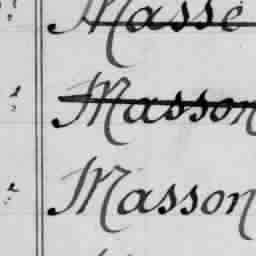 Massé
Masson
Masson